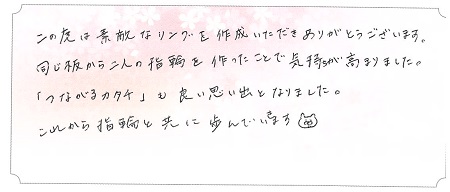 この度は素敵なリングを作成いただきありがとうございます。
同じ板から二人の指輪を作ったことで気持ちが高まりました。
「つながるカタチ」も良い思い出となりました。
これから指輪と共に歩んでいきます